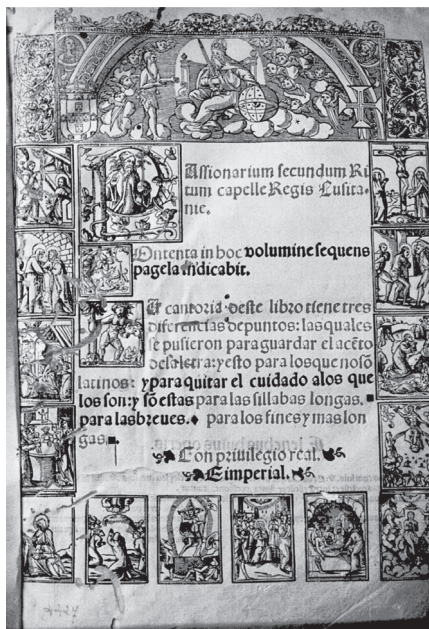 Passionarium secundum Ri
tum capelle Regis Lusita-
nie.
Contenta in hoc volumine sequens
pagela indicabit.
La cantoria deste libro tiene tres
diferencias de puntos: las quales
se pusieron para guardar el acẽto
de la letra: y esto para los que no sõ
latinos: y para quitar el cuidado a los que
los son: y sõ estas para las sillabas longas. ■
para las breues. ♦ para los fines y mas lon
gas
Con privilegio real.
E imperial.